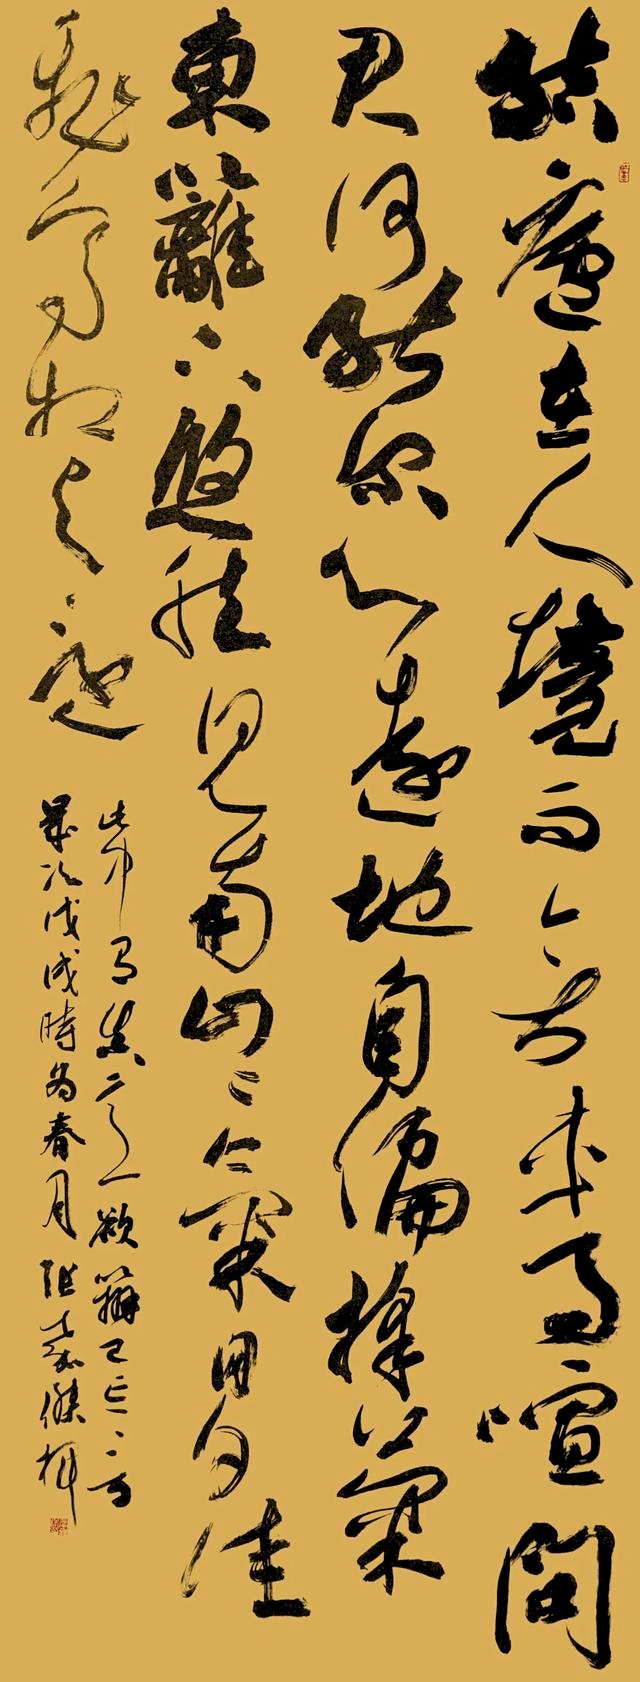 結廬在人境而無車馬喧問
君何能爾心遠地自偏採菊
東籬下悠然見南山〻氣日夕佳
飛鳥相與還
此中有真意欲辯已忘言
歲次戊戌時為春月張嘉傑